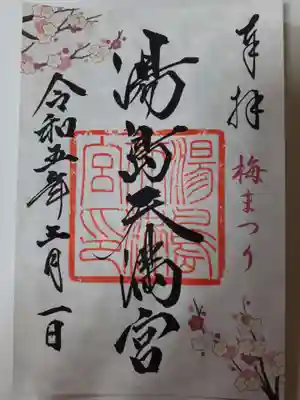 奉拝
梅まつり
湯島天満宮
令和五年三月一日
湯島
天満
宮印